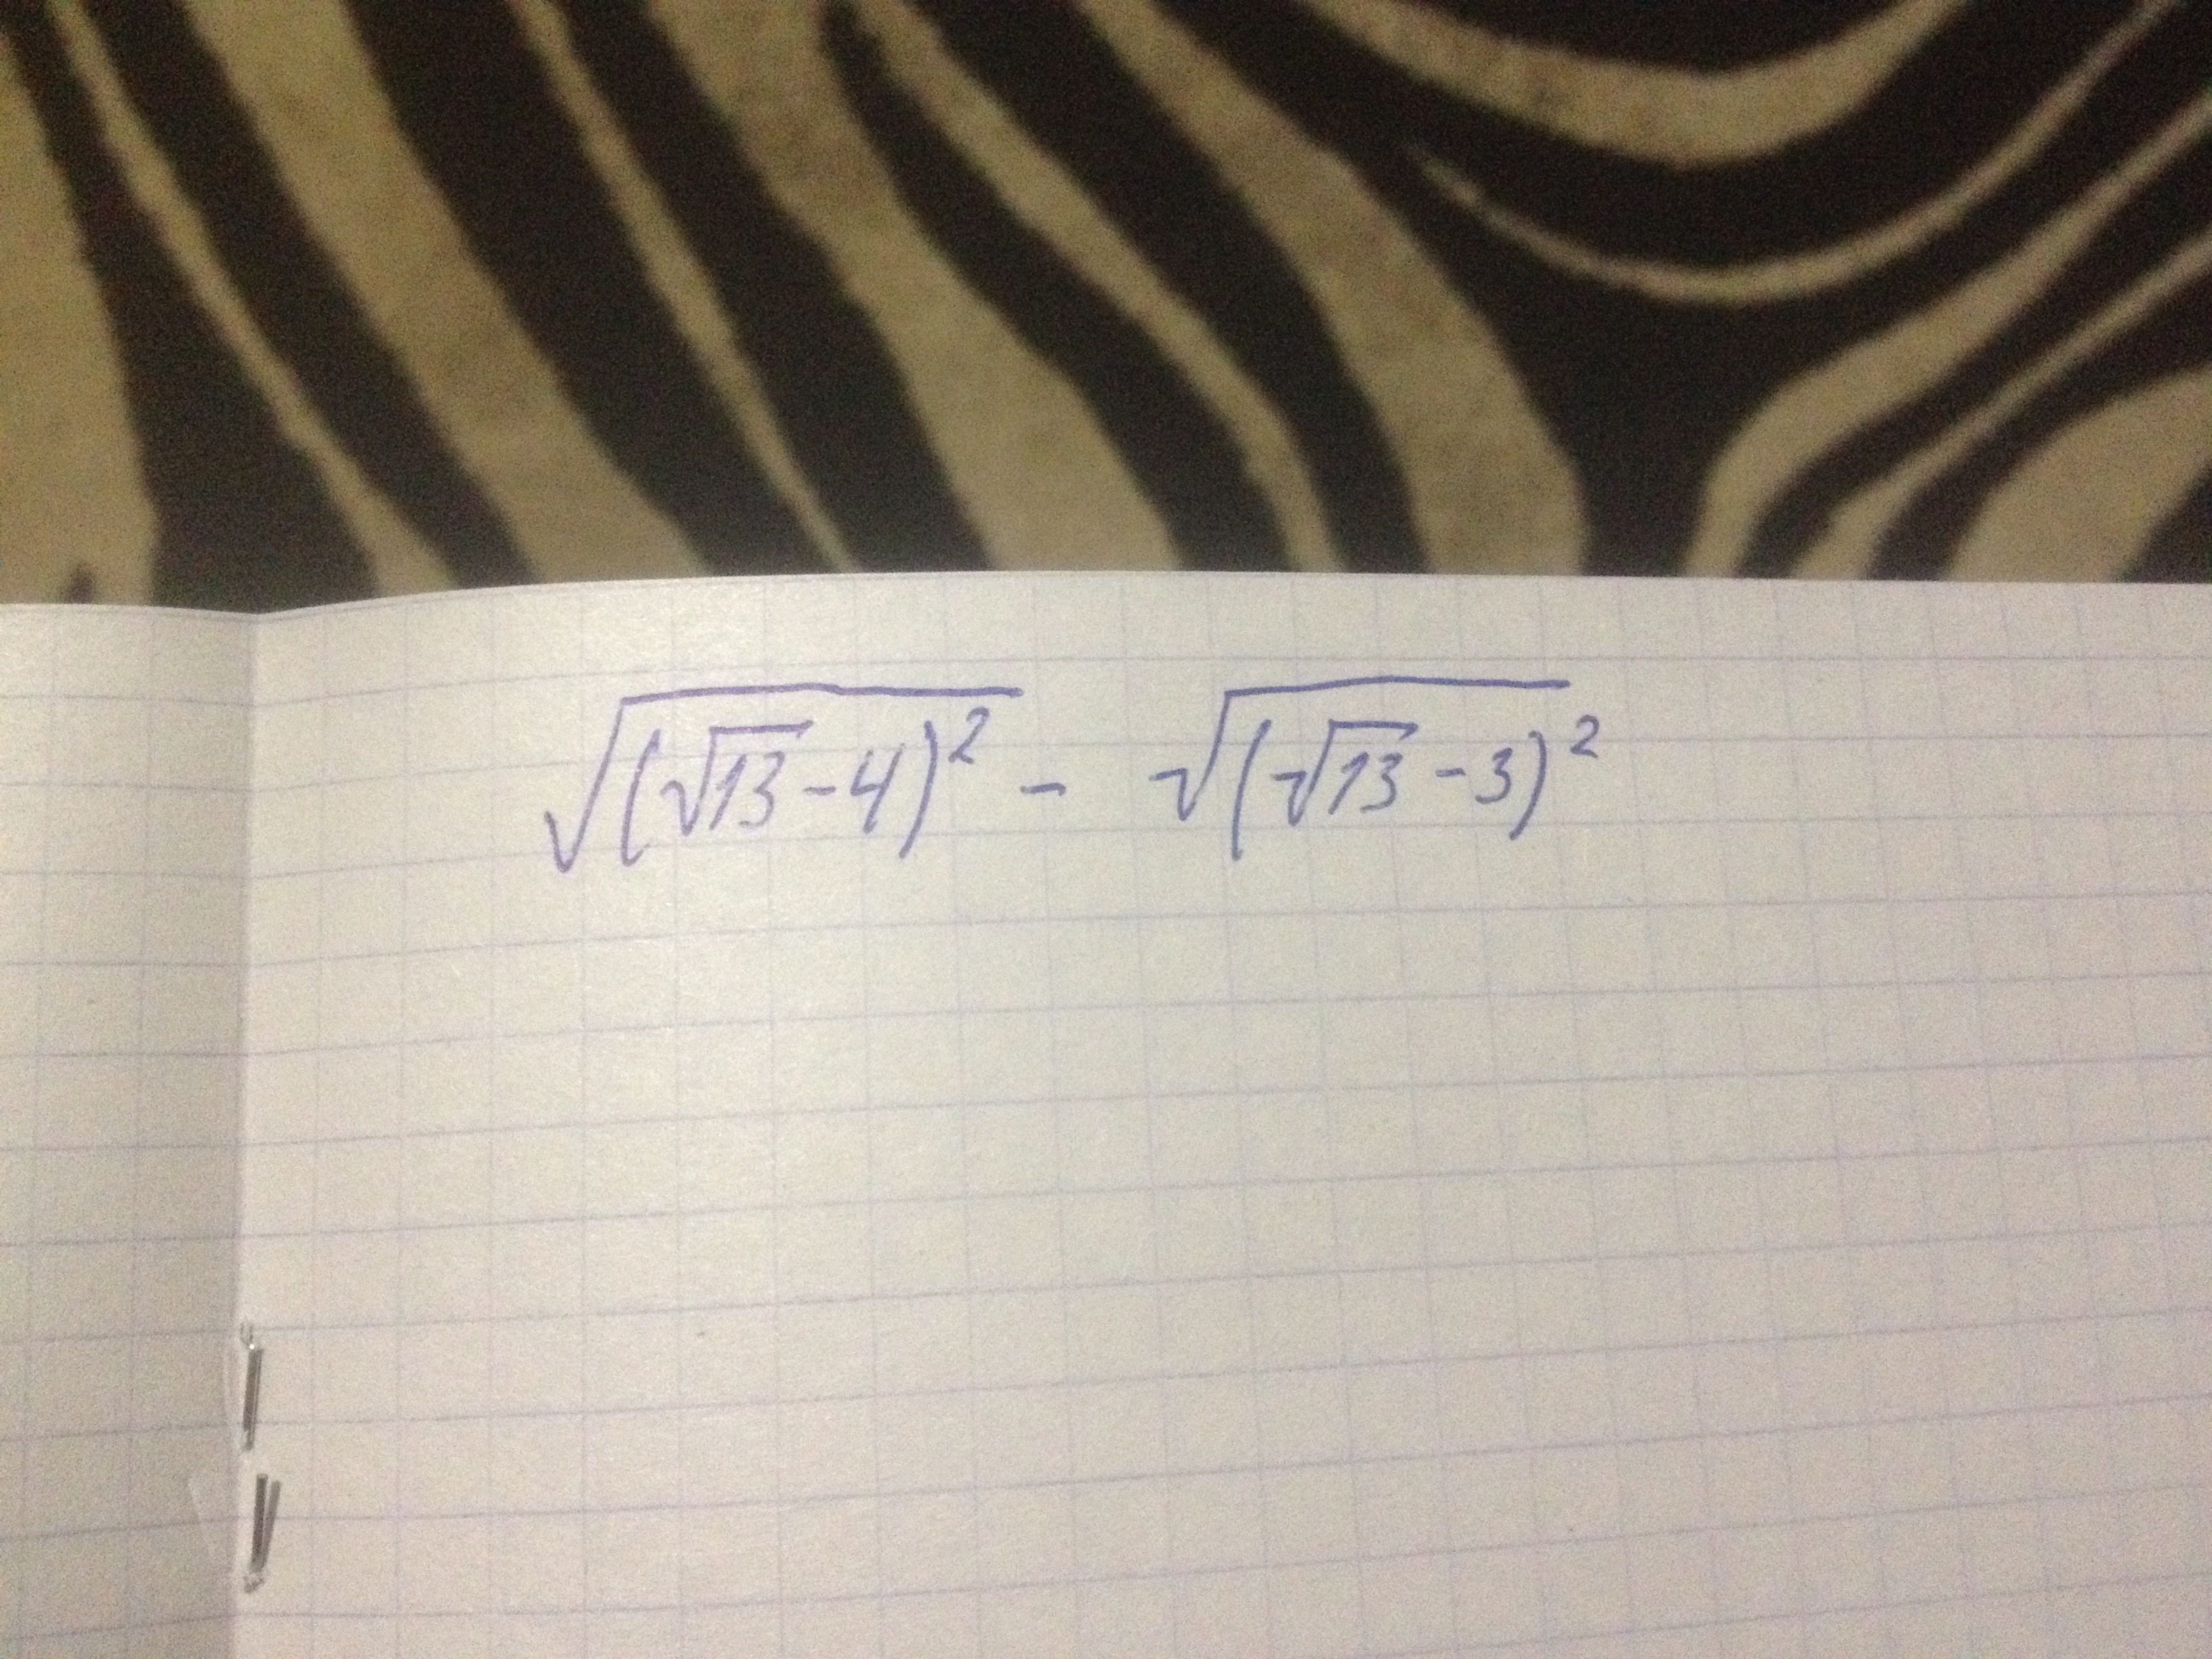 √(√13-4)² - √(√13-3)²